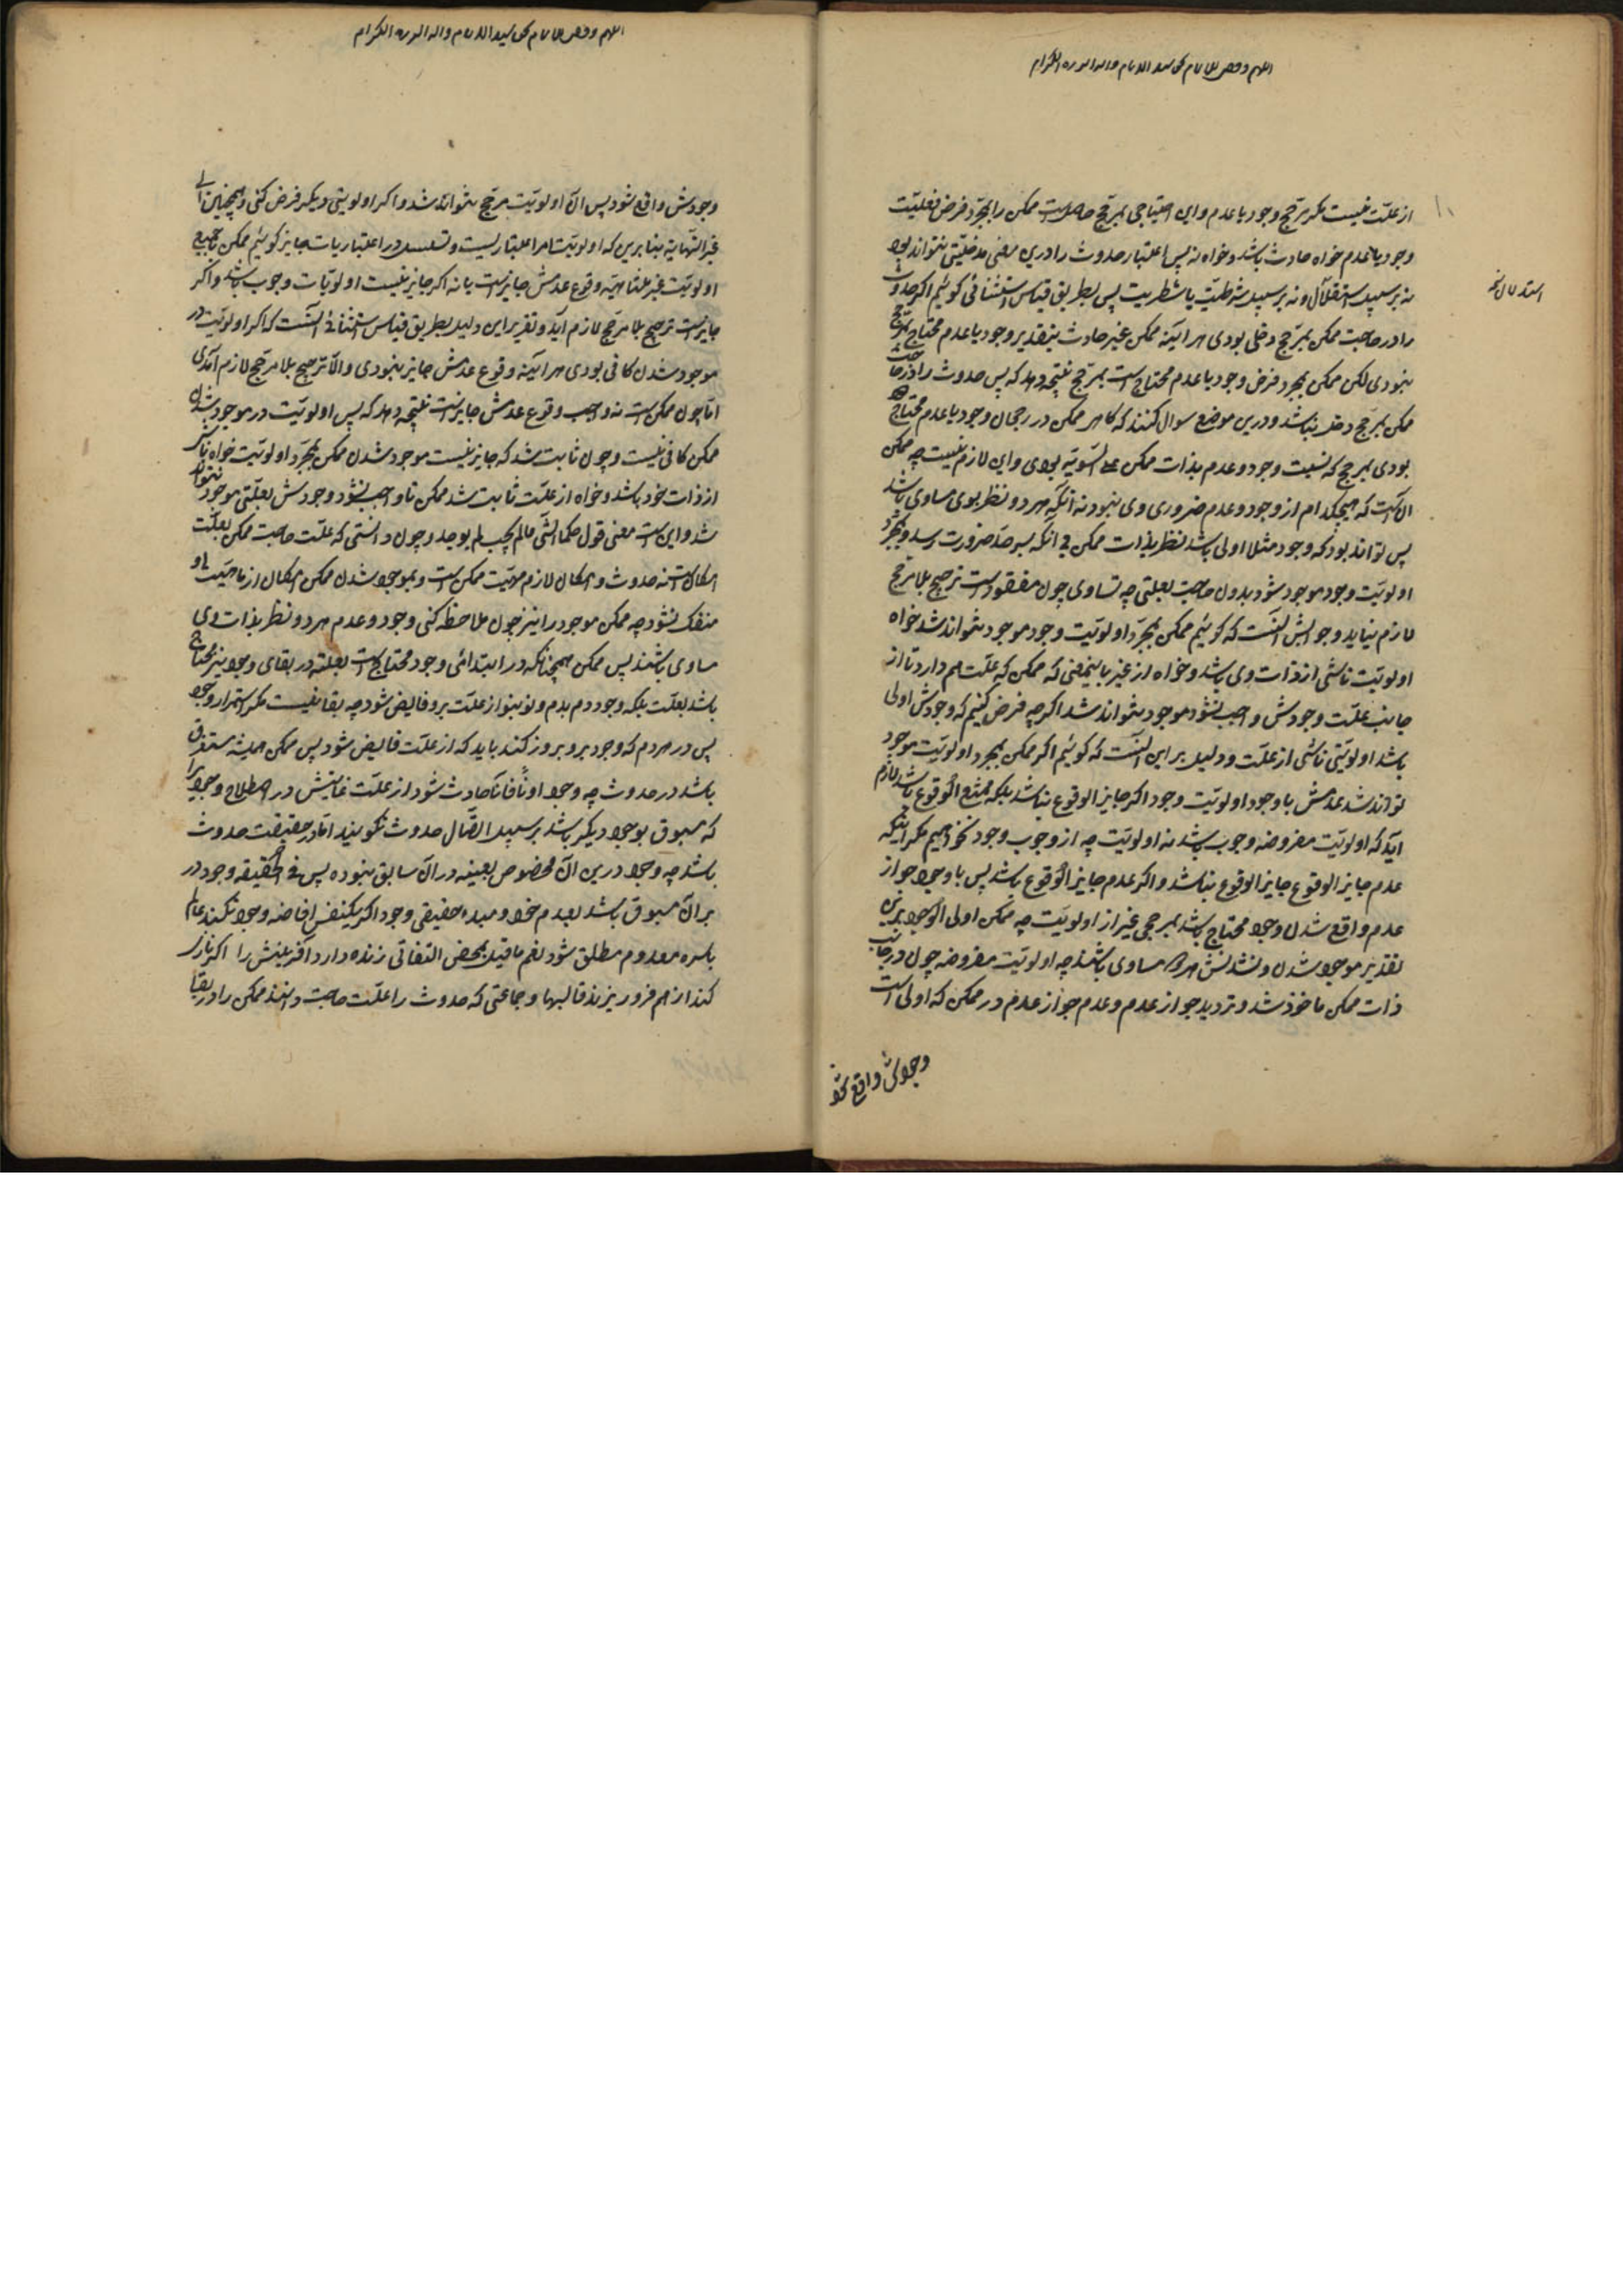 اللهم وفقنا للاتمام بحق سید الانام واله البررة الکرام
از علت نیست مکر مرجح وجود یا عدم و این احتیاجی بمرجح حاصلست ممکن را بمجرد فرض فعلیت
وجود یا عدم خواه حادث باشد و خواه نه پس اعتبار حدوث را درین معنی مدخلیتی نتواند بود
نه بر سبیل استقلال و نه بر سبیل شرطیت یا شطریت پس بطریق قیاس استثنائی کوئیم اکر حدوث
را در حاجت ممکن بمرجح دخلی بودی هر اینه ممکن غیر حادث بتقدیر وجود یا عدم محتاج بمرجح
نبودی لکن ممکن بمجرد فرض وجود یا عدم محتاج است بمرجح نتیجه دهد که پس حدوث را در حاجت
ممکن بمرجح دخل نباشد و درین موضع سوال کنند که کاهر ممکن در رجحان وجود یا عدم محتاج
بودی بمرجح که نسبت وجود و عدم بذات ممکن علی السویه بودی و این لازم نیست چه ممکن
آن است که هیچکدام از وجود و عدم ضروری وی نبود نه آنکه هر دو نظر بوی مساوی باشد
پس تواند بود که وجود مثلا اولی باشد نظر بذات ممکن بی آنکه بسر حد ضرورت رسد و بمجرد
اولویت وجود موجود شود بدون حاجت بعلتی چه تساوی چون مفقود است ترجیح بلا مرجح
لازم نیاید و جوابش آنست که کوئیم ممکن بمجرد اولویت وجود موجود نتواند شد خواه
اولویت ناشی از ذات وی باشد و خواه از غیر باینمعنی که ممکن که علت هم دارد تا از
جانب علت وجودش واجب نشود موجود نتواند شد اکر چه فرض کنیم که وجودش اولی
باشد اولویتی ناشی از علت و دلیل بر این آنست که کوئیم اکر ممکن بمجرد اولویت موجود
تواند شد عدمش با وجود اولویت وجود اکر جایز الوقوع نباشد بلکه ممتنع الوقوع باشد لازم
آید که اولویت مفروضه وجوب باشد نه اولویت چه از وجوب وجود نخواهیم مکر اینکه
عدم جایز الوقوع نباشد و اکر عدم جایز الوقوع باشد پس با وجود جواز
عدم واقع شدن وجود محتاج باشد بمرجحی غیر از اولویت چه ممکن اولی الوجود برین
تقدیر موجود شدن و نشدنش هر دو مساوی باشند چه اولویت مفروضه چون در جانب
ذات ممکن ماخوذ شد و تردید جواز عدم و عدم جواز عدم در ممکن که اولی است
وجودش واقع شود
اللهم وفقنا للاتمام بحق سید الانام واله البررة الکرام
وجودش واقع شود پس آن اولویت مرجح نتواند شد و اکر اولویتی دیکر فرض کنی و همچنین الی
غیر النهایة بنا برین که اولویت امر اعتباریست و تسلسل در اعتباریات جایز کوئیم ممکن با جمیع
اولویت غیر متناهیه وقوع عدمش جایز است یا نه اکر جایز نیست اولویات وجوب باشد و اکر
جایز است ترجیح بلا مرجح لازم آید و تقریر این دلیل بطریق قیاس استثنائی آنست که اکر اولویت در
موجود شدن کافی بودی هر آینه وقوع عدمش جایز نبودی والا ترجیح بلا مرجح لازم آمدی
اما چون ممکن است نه واجب وقوع عدمش جایز است نتیجه دهد که پس اولویت در موجود شدن
ممکن کافی نیست و چون ثابت شد که جایز نیست موجود شدن ممکن بمجرد اولویت خواه ناشی
از ذات خود باشد و خواه از علت ثابت شد ممکن تا واجب نشود وجودش بعلتی موجود نتواند
شد و این است معنی قول حکما الشی مالم یجب لم یوجد و چون دانستی که علت حاجت ممکن بعلت
امکان است نه حدوث و امکان لازم مهیت ممکن است و بموجود شدن ممکن امکان از ماهیت او
منفک نشود چه ممکن موجود را نیز چون ملاحظه کنی وجود و عدم هر دو نظر بذات وی
مساوی باشند پس ممکن همچنانکه در ابتدائی وجود محتاج است بعلته در بقای وجود نیز محتاج
باشد بعلت بلکه وجود دم بدم و نو بنو از علت برو فایض شود چه بقا نیست مکر استمرار وجود
پس در هر دم که وجود برو بروز کند باید که از علت فایض شود پس ممکن همیشه مستغرق
باشد در حدوث چه وجود او آنا فانا حادث شود از علت غایتش در اصطلاح وجود را
که مسبوق بوجود دیکر باشد بر سبیل اتصال حدوث نکویند اما در حقیقت حدوث
باشد چه وجود درین آن مخصوص بعینه در آن سابق نبوده پس فی الحقیقه وجود در
هر آن مسبوق باشد بعدم خود و مبدء حقیقی وجود اکر یکنفس افاضه وجود نکند عالم
باسره معدوم مطلق شود نعم ما قیل بمحض التفاتی زنده دارد آفرینش را اکر نازی
کند از هم فرو ریزند قالبها و جماعتی که حدوث را علت حاجت دانند ممکن را در بقا